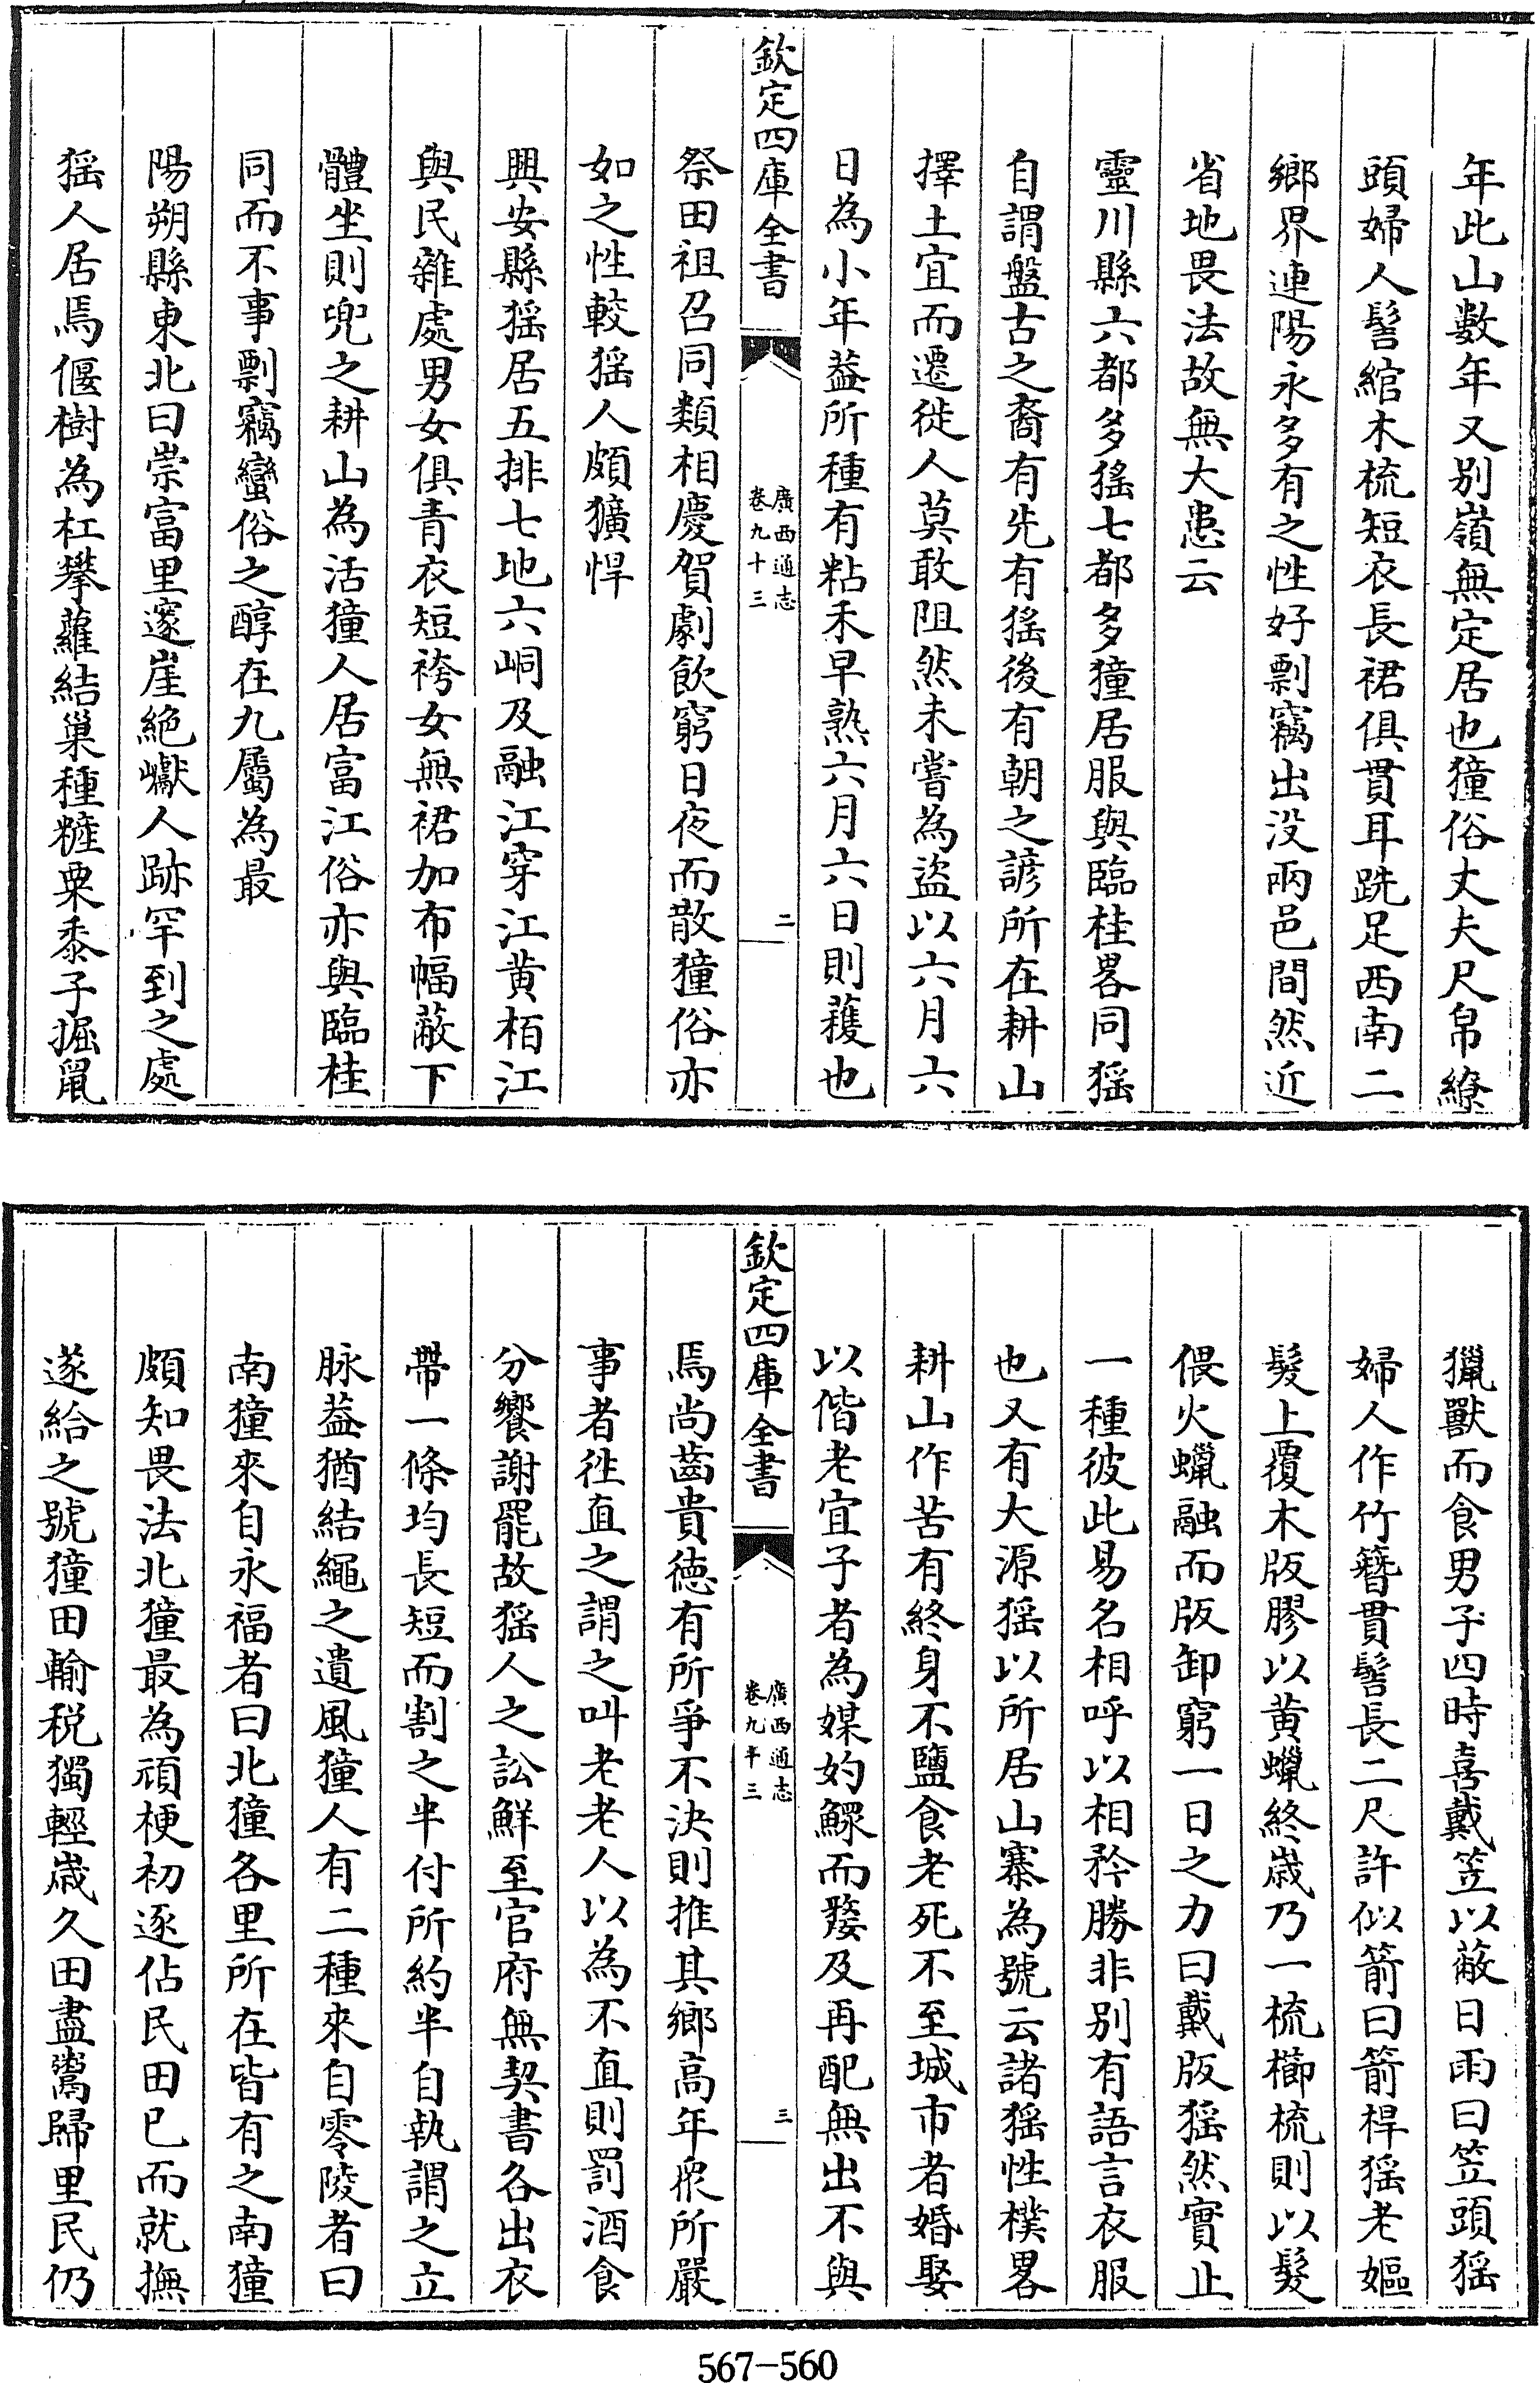 年此山數年又别嶺無定居也獞俗丈夫尺帛繚
頭婦人髻綰木梳短衣長裙俱貫耳跣足西南二
鄉界連陽永多有之性好剽竊出没兩邑間然近
省地畏法故無大患云
靈川縣六都多猺七都多獞居服與臨桂畧同猺
自謂盤古之裔有先有猺後有朝之諺所在耕山
擇土宜而遷徙人莫敢阻然未嘗為盜以六月六
日為小年葢所種有粘禾早熟六月六日則穫也
欽定四庫全書
廣西通志
卷九十三
二
祭田祖召同類相慶賀劇飲窮日夜而散獞俗亦
如之性較猺人頗獷悍
興安縣猺居五排七地六峒及融江穿江黄栢江
與民雜處男女俱青衣短袴女無裙加布幅蔽下
體坐則兜之耕山為活獞人居富江俗亦與臨桂
同而不事剽竊蠻俗之醇在九屬為最
陽朔縣東北曰崇富里邃崖絶巘人跡罕到之處
猺人居焉偃樹為杠攀蘿結巢種𥻧粟黍子掘鼠
獵獸而食男子四時喜戴笠以蔽日雨曰笠頭猺
婦人作竹簪貫髻長二尺許似箭曰箭桿猺老嫗
髮上覆木版膠以黄蠟終歲乃一梳櫛梳則以髮
偎火蠟融而版卸窮一日之力曰戴版猺然實止
一種彼此易名相呼以相矜勝非别有語言衣服
也又有大源猺以所居山寨為號云諸猺性樸畧
耕山作苦有終身不鹽食老死不至城市者婚娶
以偕老宜子者為媒妁鰥而嫠及再配無出不與
欽定四庫全書
廣西通志
卷九十三
三
焉尚齒貴徳有所爭不決則推其鄉高年衆所嚴
事者徃直之謂之叫老老人以為不直則罰酒食
分饗謝罷故猺人之訟鮮至官府無契書各出衣
帶一條均長短而割之半付所約半自執謂之立
脉葢猶結繩之遺風獞人有二種來自零陵者曰
南獞來自永福者曰北獞各里所在皆有之南獞
頗知畏法北獞最為頑梗初逐佔民田已而就撫
遂給之號獞田輸税獨輕歲久田盡鬻歸里民仍
567-560